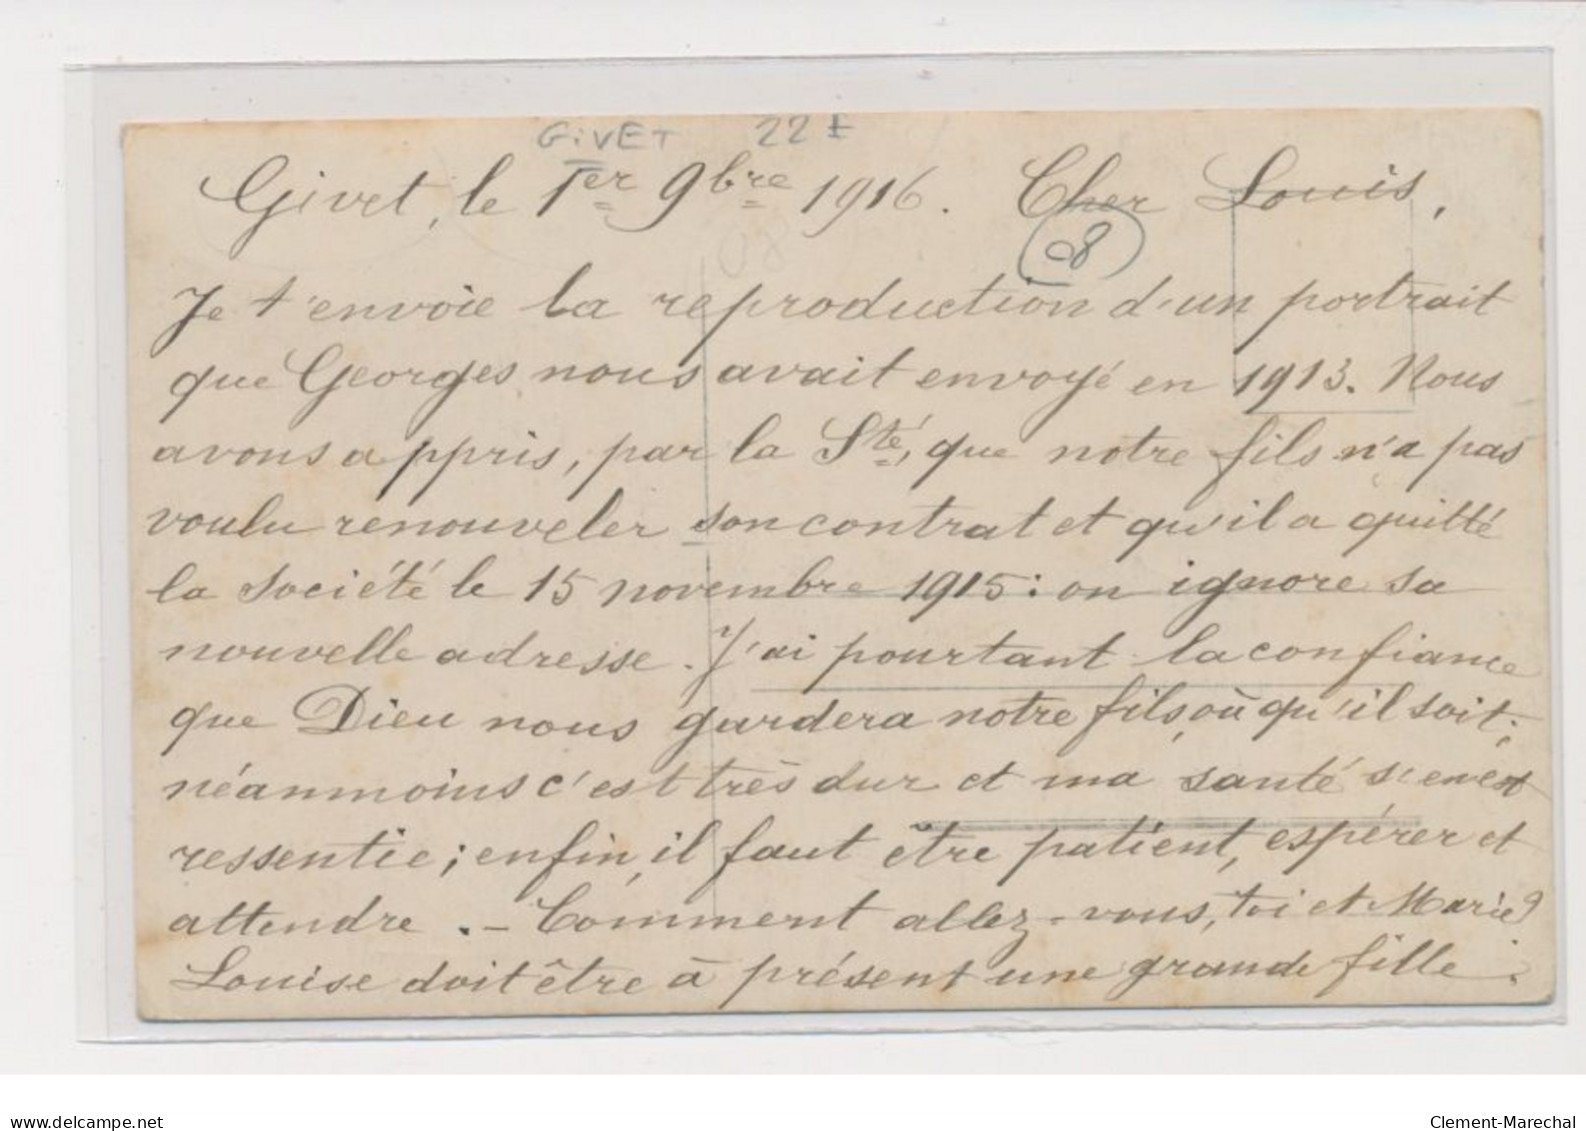 GIVET 22 I
Givet, le 1er 9bre 1916. Cher Louis,
08
08
Je t'envoie la reproduction d'un portrait
que Georges nous avait envoyé en 1913. Nous
avons appris, par la Sté, que notre fils n'a pas
voulu renouveler son contrat et qu'il a quitté
la Société le 15 novembre 1915: on ignore sa
nouvelle adresse. J'ai pourtant la confiance
que Dieu nous gardera notre fils, où qu'il soit;
néanmoins c'est très dur et ma santé s'en est
ressentie; enfin, il faut être patient, espérer et
attendre. - Comment allez-vous, toi et Marie?
Louise doit être à présent une grande fille.
www.delcampe.net
Clement-Marechal